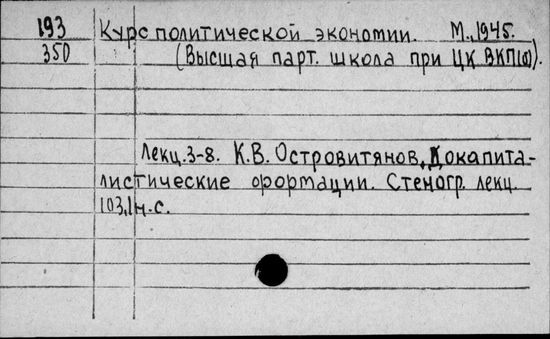 193 Курс политической экономии. М., 1945.
350 (Высшая парт. школа при ЦК ВКП(б)).
Лекц.3-8. К.В. Островитянов. Докапита-
листические формации. Стеногр. лекц.
103,1н.с.